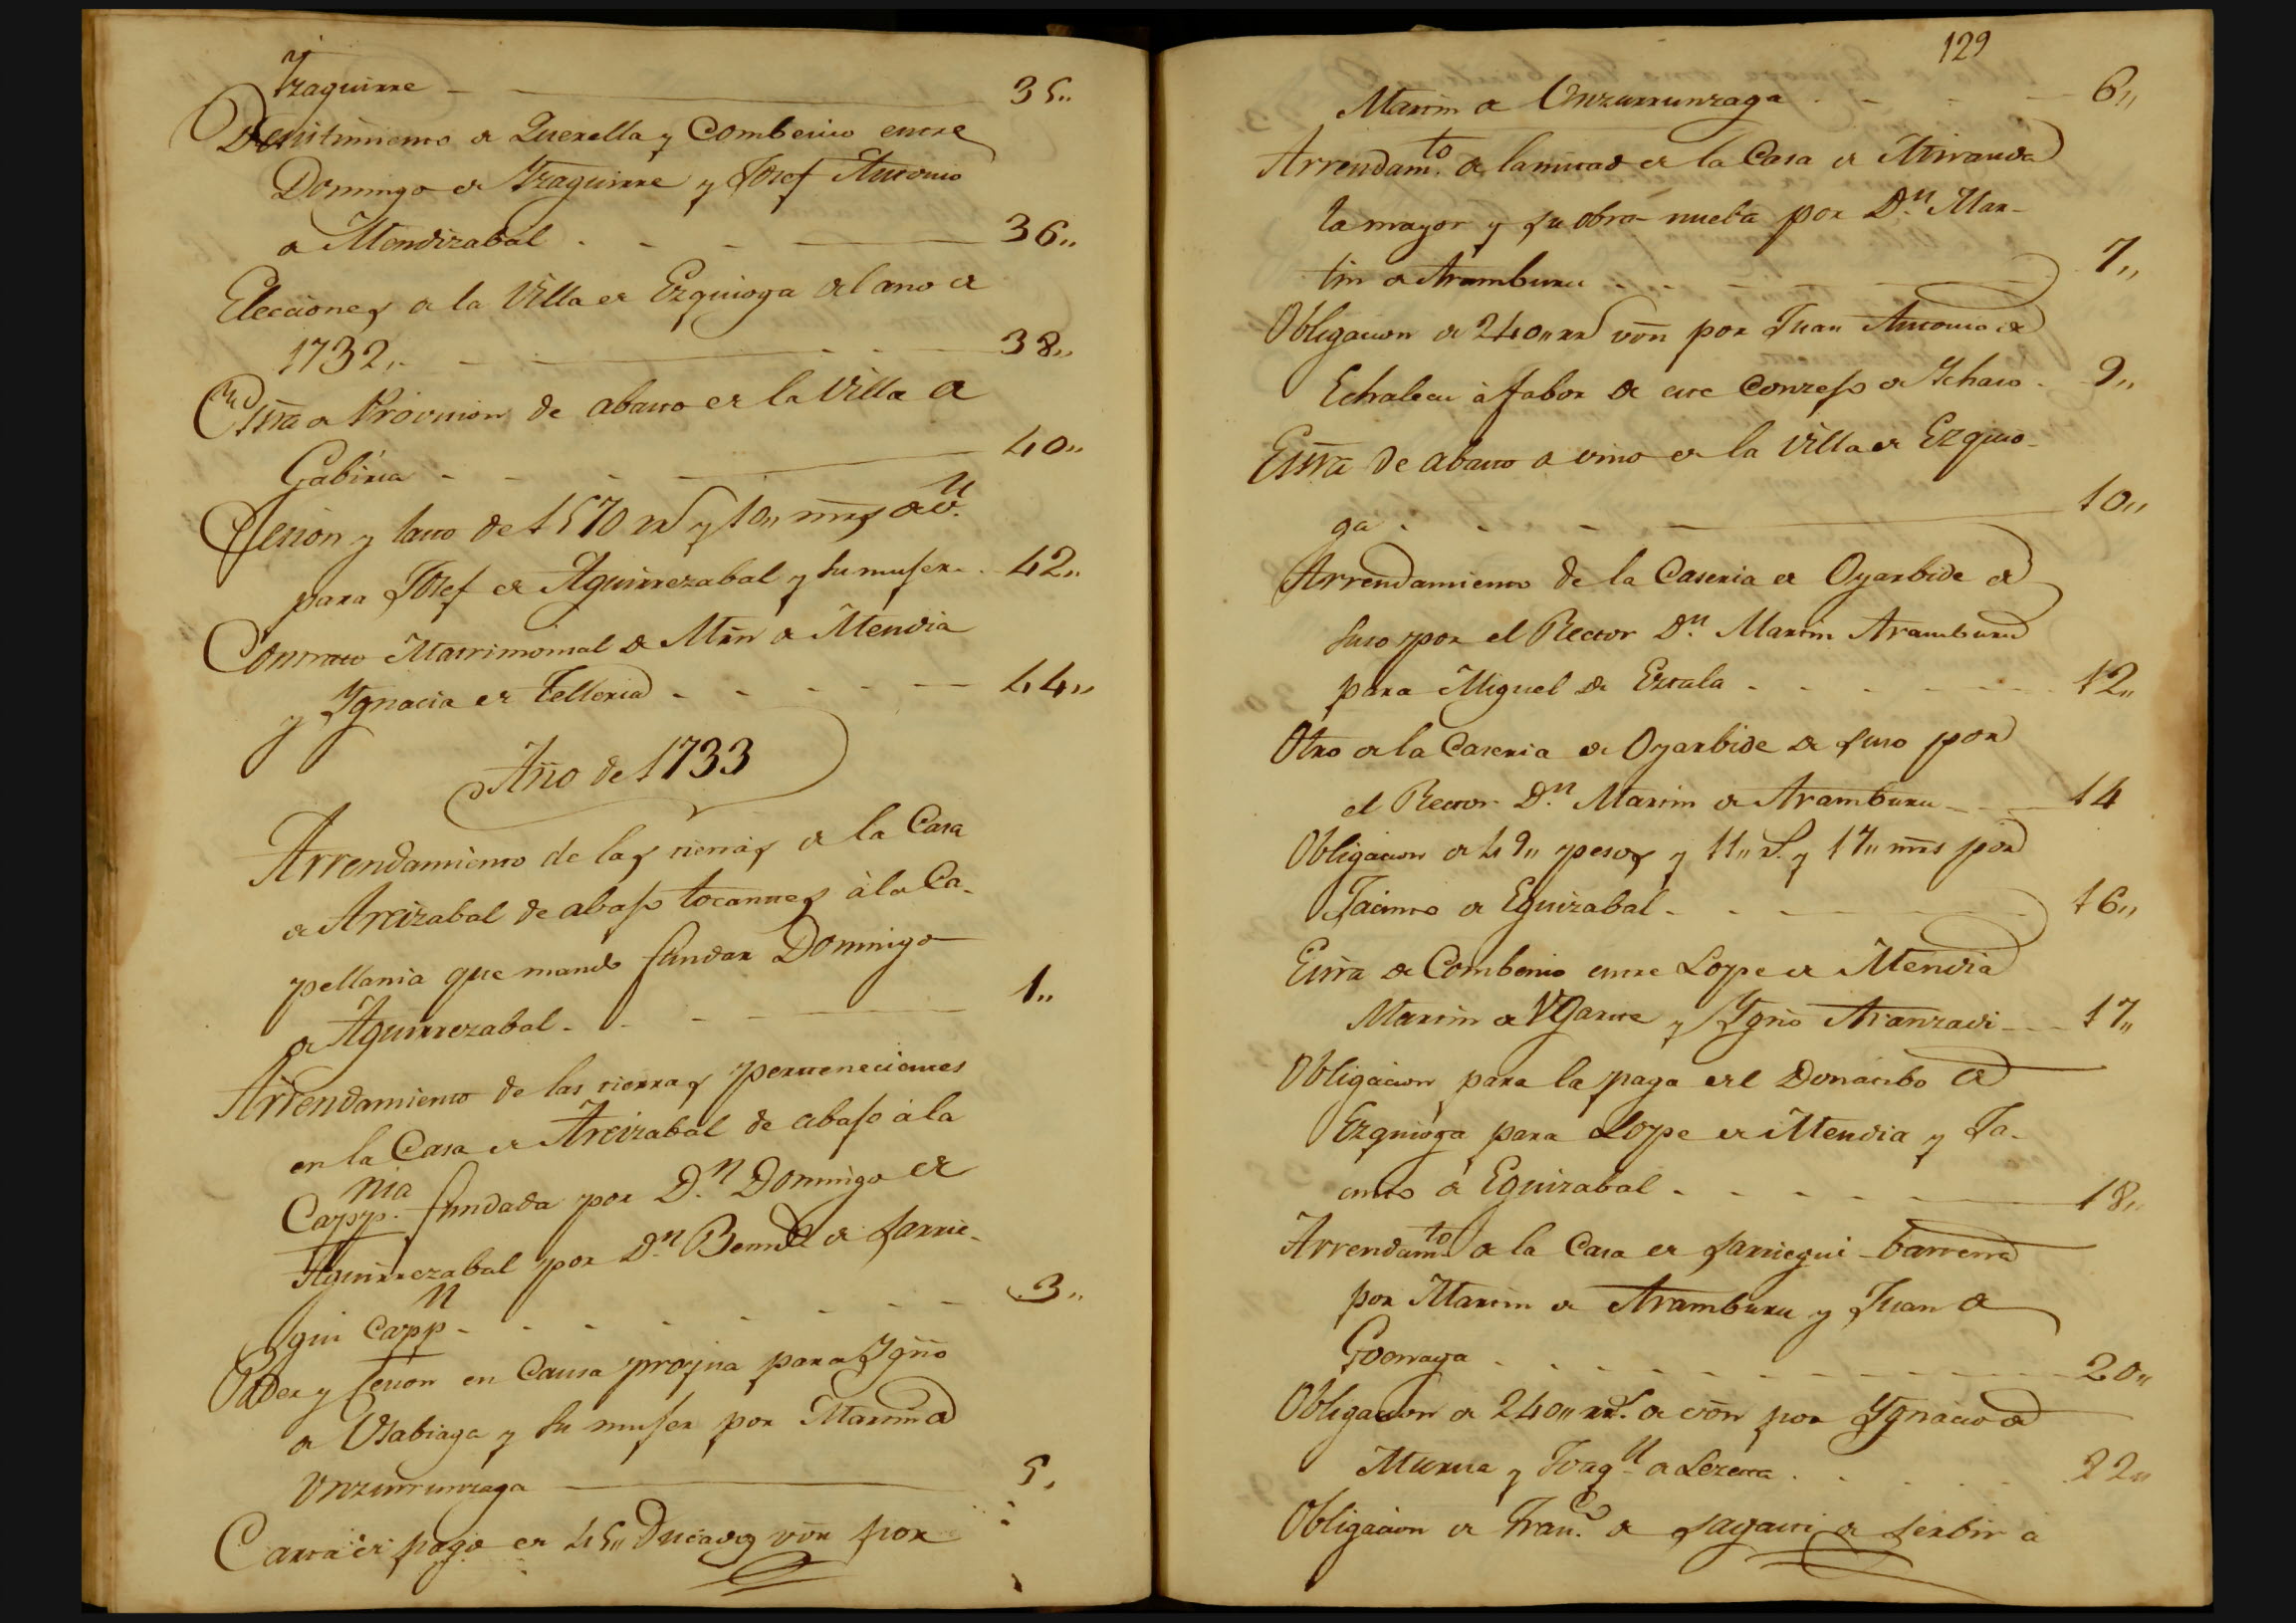 Yzaguirre 35,,
Desistimiento de Querella y Combenio entre
Domingo de Yzaguirre y Josef Antonio
de Mendizabal 36,,
Elecciones de la Villa de Ezquioga del ano de
1732,, 38,,
Essra de Provision de abasto de la Villa de
Gabiria 40,,
Cesion y lasto de 1570 rs y 10,, mrs de v.n
para Josef de Aguirrezabal y su muger 42,,
Contrato Matrimonial de Mrn de Mendia
y Ygnacia de Telleria 44,,
Año de 1733
Arrendamiento de las tierras de la Casa
de Arcizabal de abajo tocantes à la Ca-
pellania que mando fundar Domingo
de Aguirrezabal 1,,
Arrendamiento de las tierras pertenecientes
en la Casa de Arcizabal de abajo à la
Capp.nia fundada por D.n Domingo de
Aguirrezabal por D.n Bernde de Sarrie-
gui Capp.n 3,,
Poder y Cesion en Causa propia para Ygño
de Usabiaga y su muger por Martin de
Unzurrunzaga 5,
Carta de pago de 45,, Ducados von por
129
Martin de Unzurrunzaga 6,,
Arrendam.to de la mitad de la Casa de Miranda
la mayor y su obra nueba por D.n Mar-
tin de Aramburu 7,,
Obligacion de 240,, rrs von por Juan Antonio de
Echalecu à fabor de este Conzejo de Ychaso 9,,
Essra de abasto de vino de la Villa de Ezquio-
ga 10,,
Arrendamiento de la Caseria de Oyarbide de
suso por el Rector D.n Martin Aramburu
para Miguel de Ezcala 12,,
Otro de la Caseria de Oyarbide de suso por
el Rector D.n Martin de Aramburu 14
Obligacion de 49,, pesos y 11,, rs. y 17,, mrs por
Jacinto de Eguizabal 16,,
Essra de Combenio entre Lope de Mendia
Martin de Ugarte y Ygño Aranzadi 17,,
Obligacion para la paga del Donatibo de
Ezquioga para Lope de Mendia y Ja-
cinto de Eguizabal 18,,
Arrendam.to de la Casa de Sarriegui barrena
por Martin de Aramburu y Juan de
Goenaga 20,,
Obligacion de 240,, rrs. de von por Ygnacio de
Murua y Joaq.n de Lezeta 22,,
Obligacion de Fran.co de Sagasti de serbir à